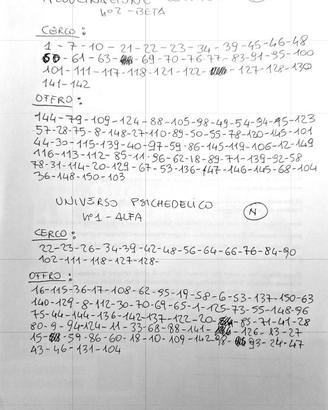 402-BETA
CERCO:
1-7-10-21-22-23-34-39-45-46-48
60-61-63-69-70-76-77-83-91-95-100
101-111-117-118-121-122-127-128-130
141-142
OFFRO:
144-79-109-124-88-105-98-49-54-34-45-123
57-28-75-8-148-27-110-89-50-55-78-120-145-101
44-30-115-139-40-97-59-86-145-119-106-12-149
116-113-112-85-11-96-62-18-89-71-139-92-58
78-31-114-20-129-67-53-136-147-146-145-68-104
36-148-150-103
UNIVERSO PSICHEDELICO
N°1-ALFA
N
CERCO:
22-23-26-34-39-42-48-56-64-66-76-84-90
102-111-118-127-128-
OFFRO:
16-115-36-17-108-62-95-19-58-6-53-137-150-63
140-129-8-112-30-70-69-65-1-125-73-55-148-96
75-44-144-136-142-137-122-20-85-71-41-28
80-9-94-124-11-33-68-88-141-126-13-27
15-59-86-60-18-10-109-142-93-24-47
43-46-131-104